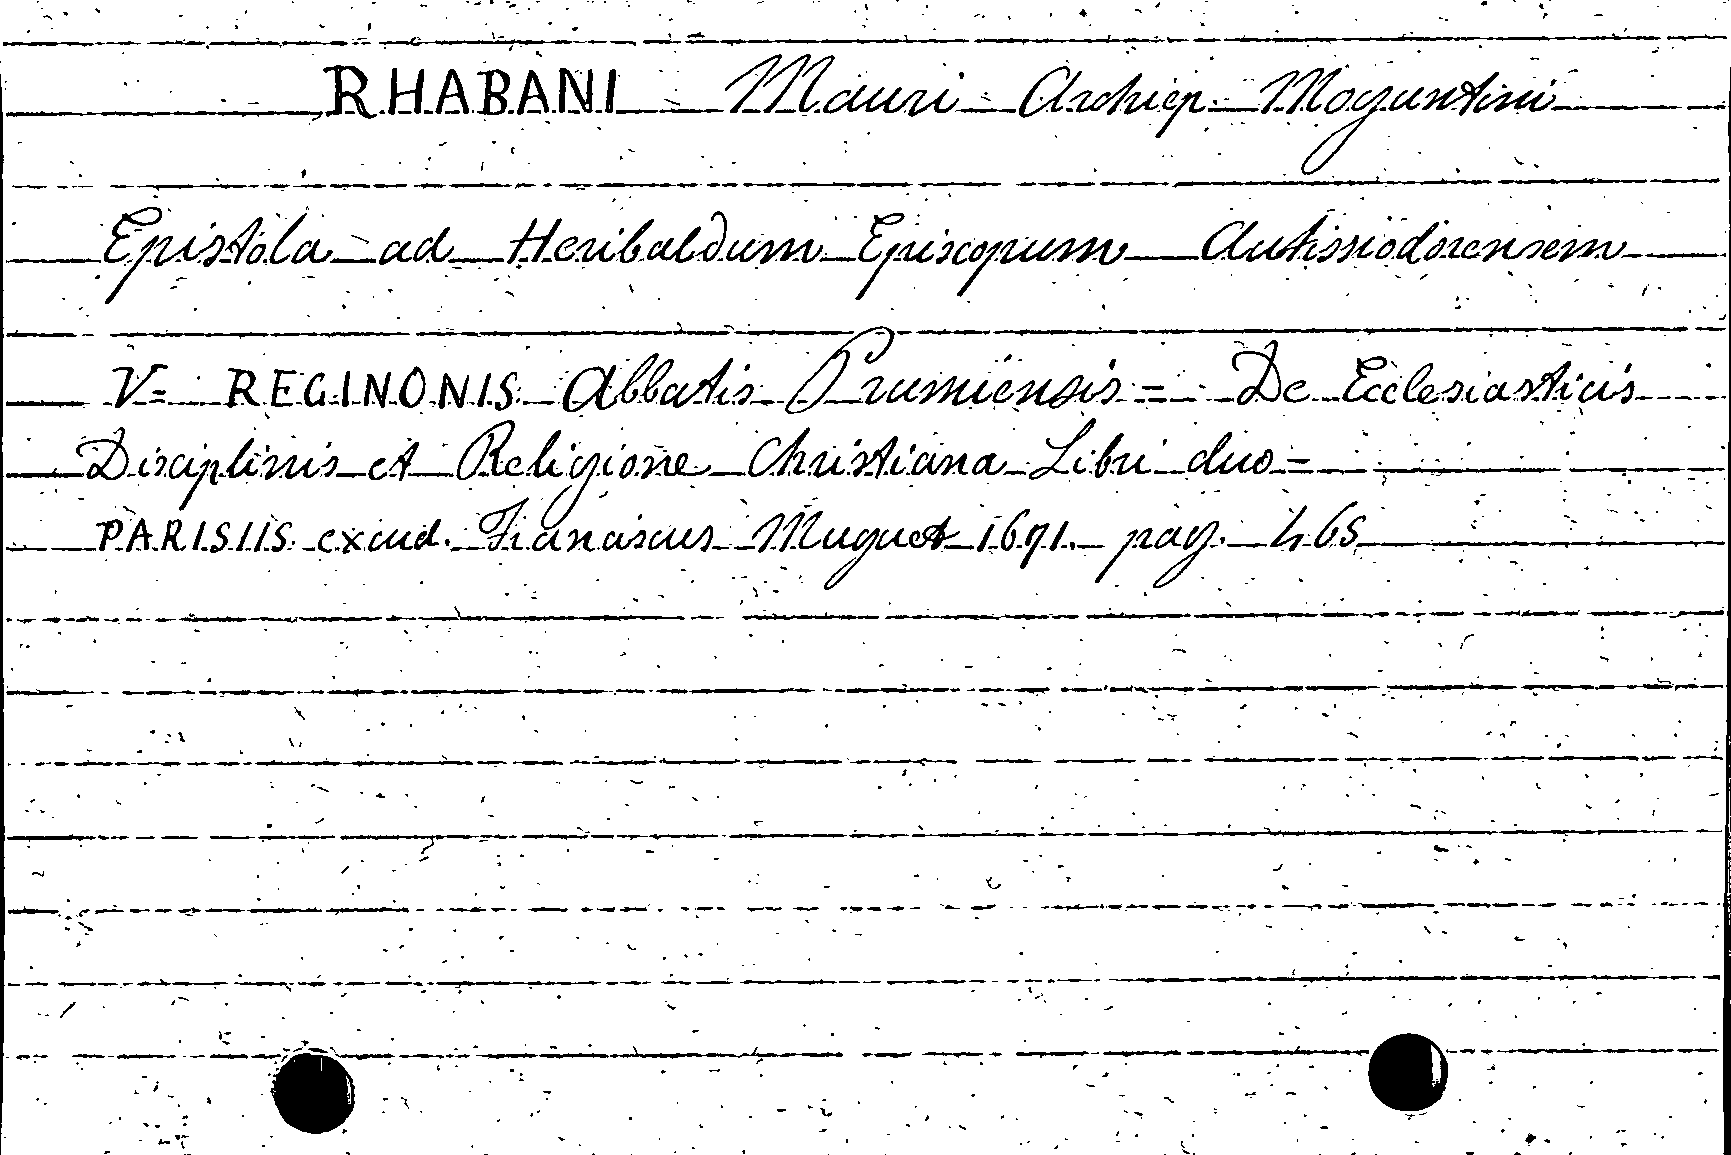 RHABANI Mauri Archiep. Moguntini
Epistola ad Heribaldum Episcopum Autissiodorensem
V= REGINONIS Abbatis Prumiensis = De Ecclesiasticis
Disciplinis et Religione Christiana Libri duo=
PARISIIS excud. Franciscus Muguet 1671. pag. 465